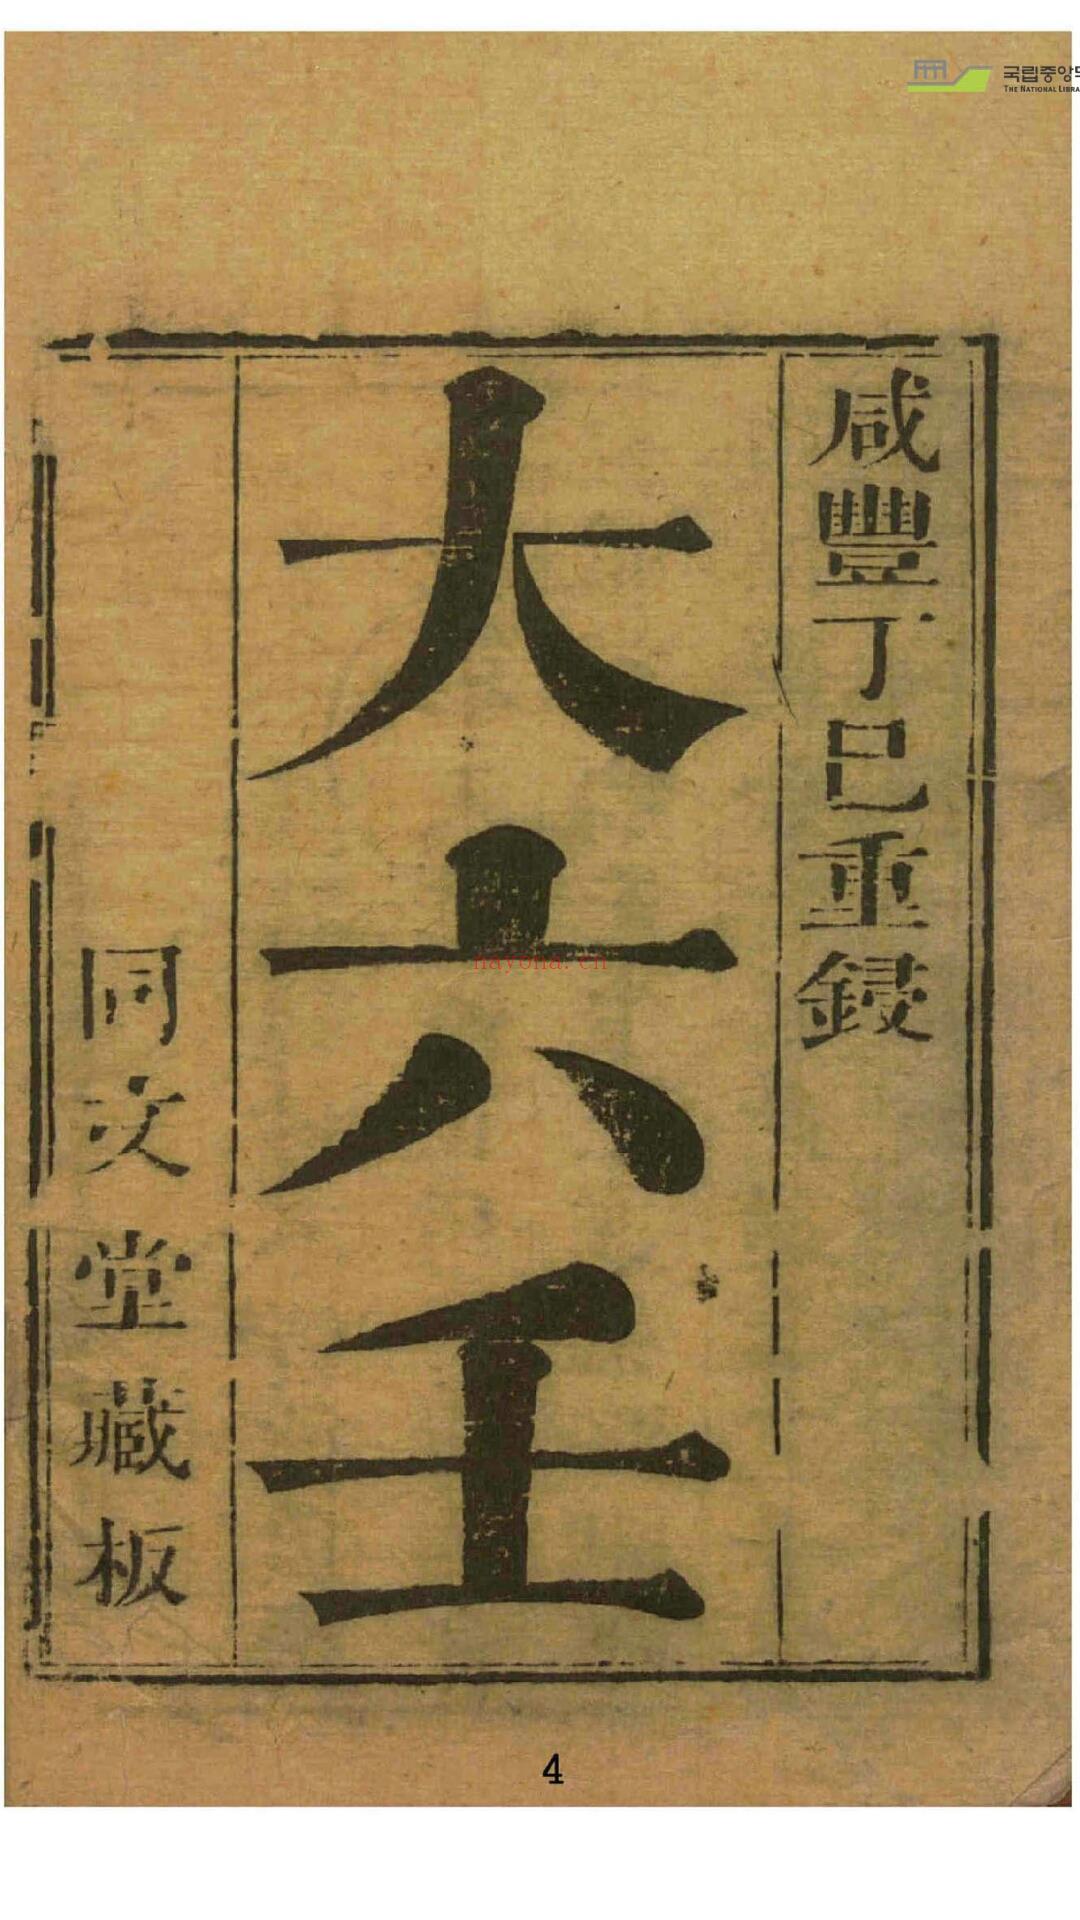 咸豐丁巳重鋟
大六壬
同文堂藏板
국립중앙도
THE NATIONAL LIBRA
nayona.cn
4